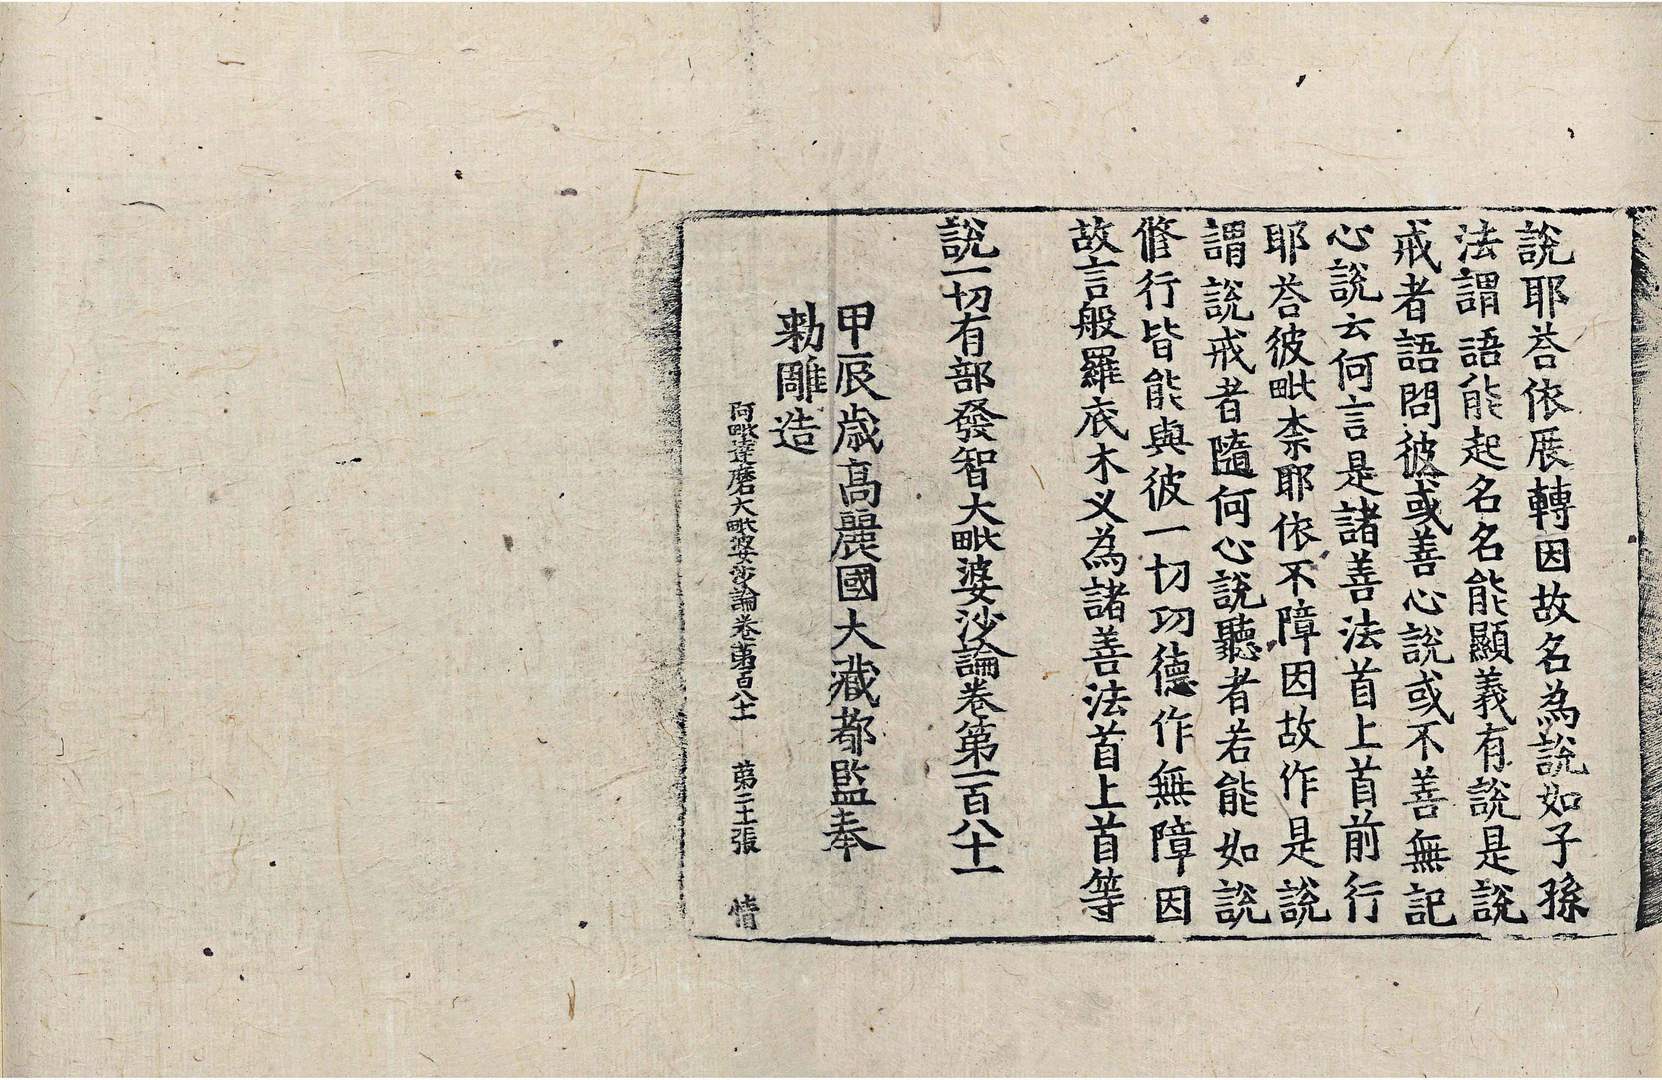 說耶荅依展轉因故名為說如子孫
法謂語能起名名能顯義有說是說
戒者語問彼或善心說或不善無記
心說云何言是諸善法首上首前行
耶荅彼毗柰耶依不障因故作是說
謂說戒者隨何心說聽者若能如說
脩行皆能與彼一切功德作無障因
故言般羅底木叉為諸善法首上首等
說一切有部發智大毗婆沙論卷第一百八十一
甲辰歲高麗國大藏都監奉
勑雕造
阿毗達磨大毗婆沙論卷第百八十一 第二十張 情